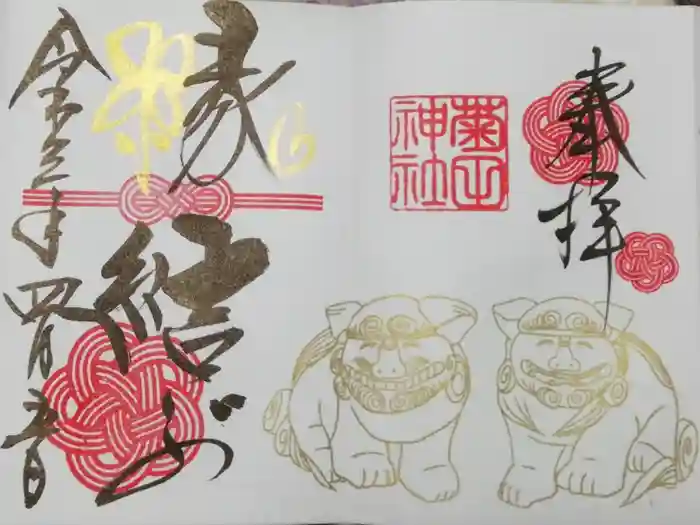 奉拝
菊田
神社
縁
結び
令和三年四月五日